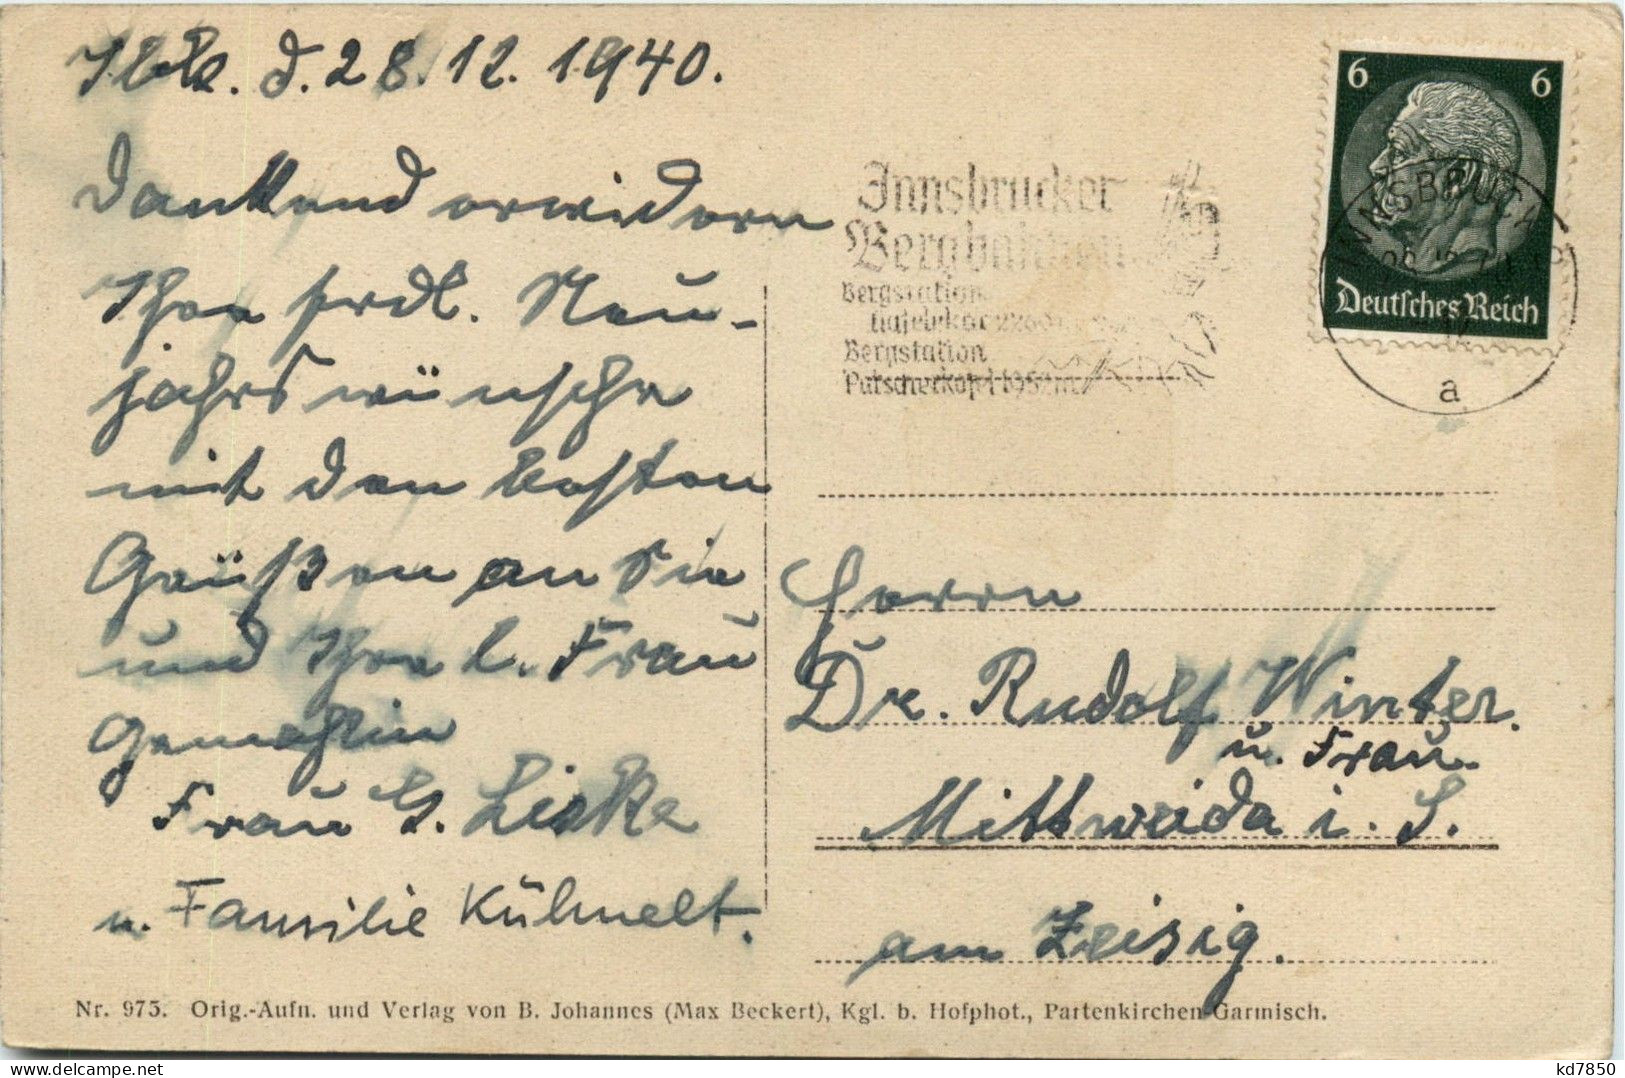 Ibk. d. 28.12.1940.
Dankend erwidern
Ihre frdl. Neu-
jahrswünsche
mit den besten
Grüßen an Sie
und Ihre l. Frau
Gemahlin
Frau G. Liske
u. Familie Kühnelt.
Innsbrucker
Bergbahnen
Bergstation
Hafelekar
Bergstation
Patscherkofel
6 6
Deutsches Reich
INNSBRUCK
a
Herrn
Dr. Rudolf Winter.
u. Frau.
Mittweida i. S.
am Zeisig.
Nr. 975. Orig.-Aufn. und Verlag von B. Johannes (Max Beckert), Kgl. b. Hofphot., Partenkirchen-Garmisch.
kd7850